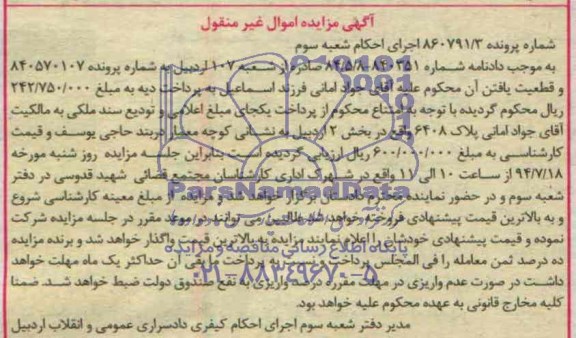 آگهی مزایده اموال غیر منقول
شماره پرونده ۸۶۰۷۹۱/۳ اجرای احکام شعبه سوم
به موجب دادنامه شماره ۸۴۰۳۵۱-۸۴/۵/۸ صادره از شعبه ۱۰۷ اردبیل به شماره پرونده ۸۴۰۵۷۰۱۰۷
و قطعیت یافتن آن محکوم علیه آقای جواد امانی فرزند اسماعیل به پرداخت دیه به مبلغ ۲۴۲/۷۵۰/۰۰۰
ریال محکوم گردیده با توجه به امتناع محکوم از پرداخت یکجای مبلغ اعلامی و تودیع سند ملکی به مالکیت
آقای جواد امانی پلاک ۶۴۰۸ واقع در بخش ۲ اردبیل به نشانی کوچه معمار دربند حاجی یوسف و قیمت
کارشناسی به مبلغ ۶۰۰/۰۰۰/۰۰۰ ریال ارزیابی گردیده است بنابراین جلسه مزایده روز شنبه مورخه
۹۴/۷/۱۸ از ساعت ۱۰ الی ۱۱ واقع در شهرک اداری کارشناسان مجتمع قضائی شهید قدوسی در دفتر
شعبه سوم و در حضور نماینده محترم دادستان برگزار خواهد شد و مزایده از مبلغ معینه کارشناسی شروع
و به بالاترین قیمت پیشنهادی فروخته خواهد شد طالبین می توانند در موعد مقرر در جلسه مزایده شرکت
نموده و قیمت پیشنهادی خودشان را اعلام نمایند مزایده به بالاترین قیمت واگذار خواهد شد و برنده مزایده
ده درصد ثمن معامله را فی المجلس پرداخت و نسبت به پرداخت مابقی آن حداکثر یک ماه مهلت خواهد
داشت در صورت عدم واریزی در مهلت مقرره ده درصد واریزی به نفع صندوق دولت ضبط خواهد شد. ضمنا
کلیه مخارج قانونی به عهده محکوم علیه خواهد بود.
مدیر دفتر شعبه سوم اجرای احکام کیفری دادسرای عمومی و انقلاب اردبیل
ParsNamadData
پایگاه اطلاع رسانی مناقصه و مزایده
۰۲۱-۸۸۳۴۹۶۷۰-۵